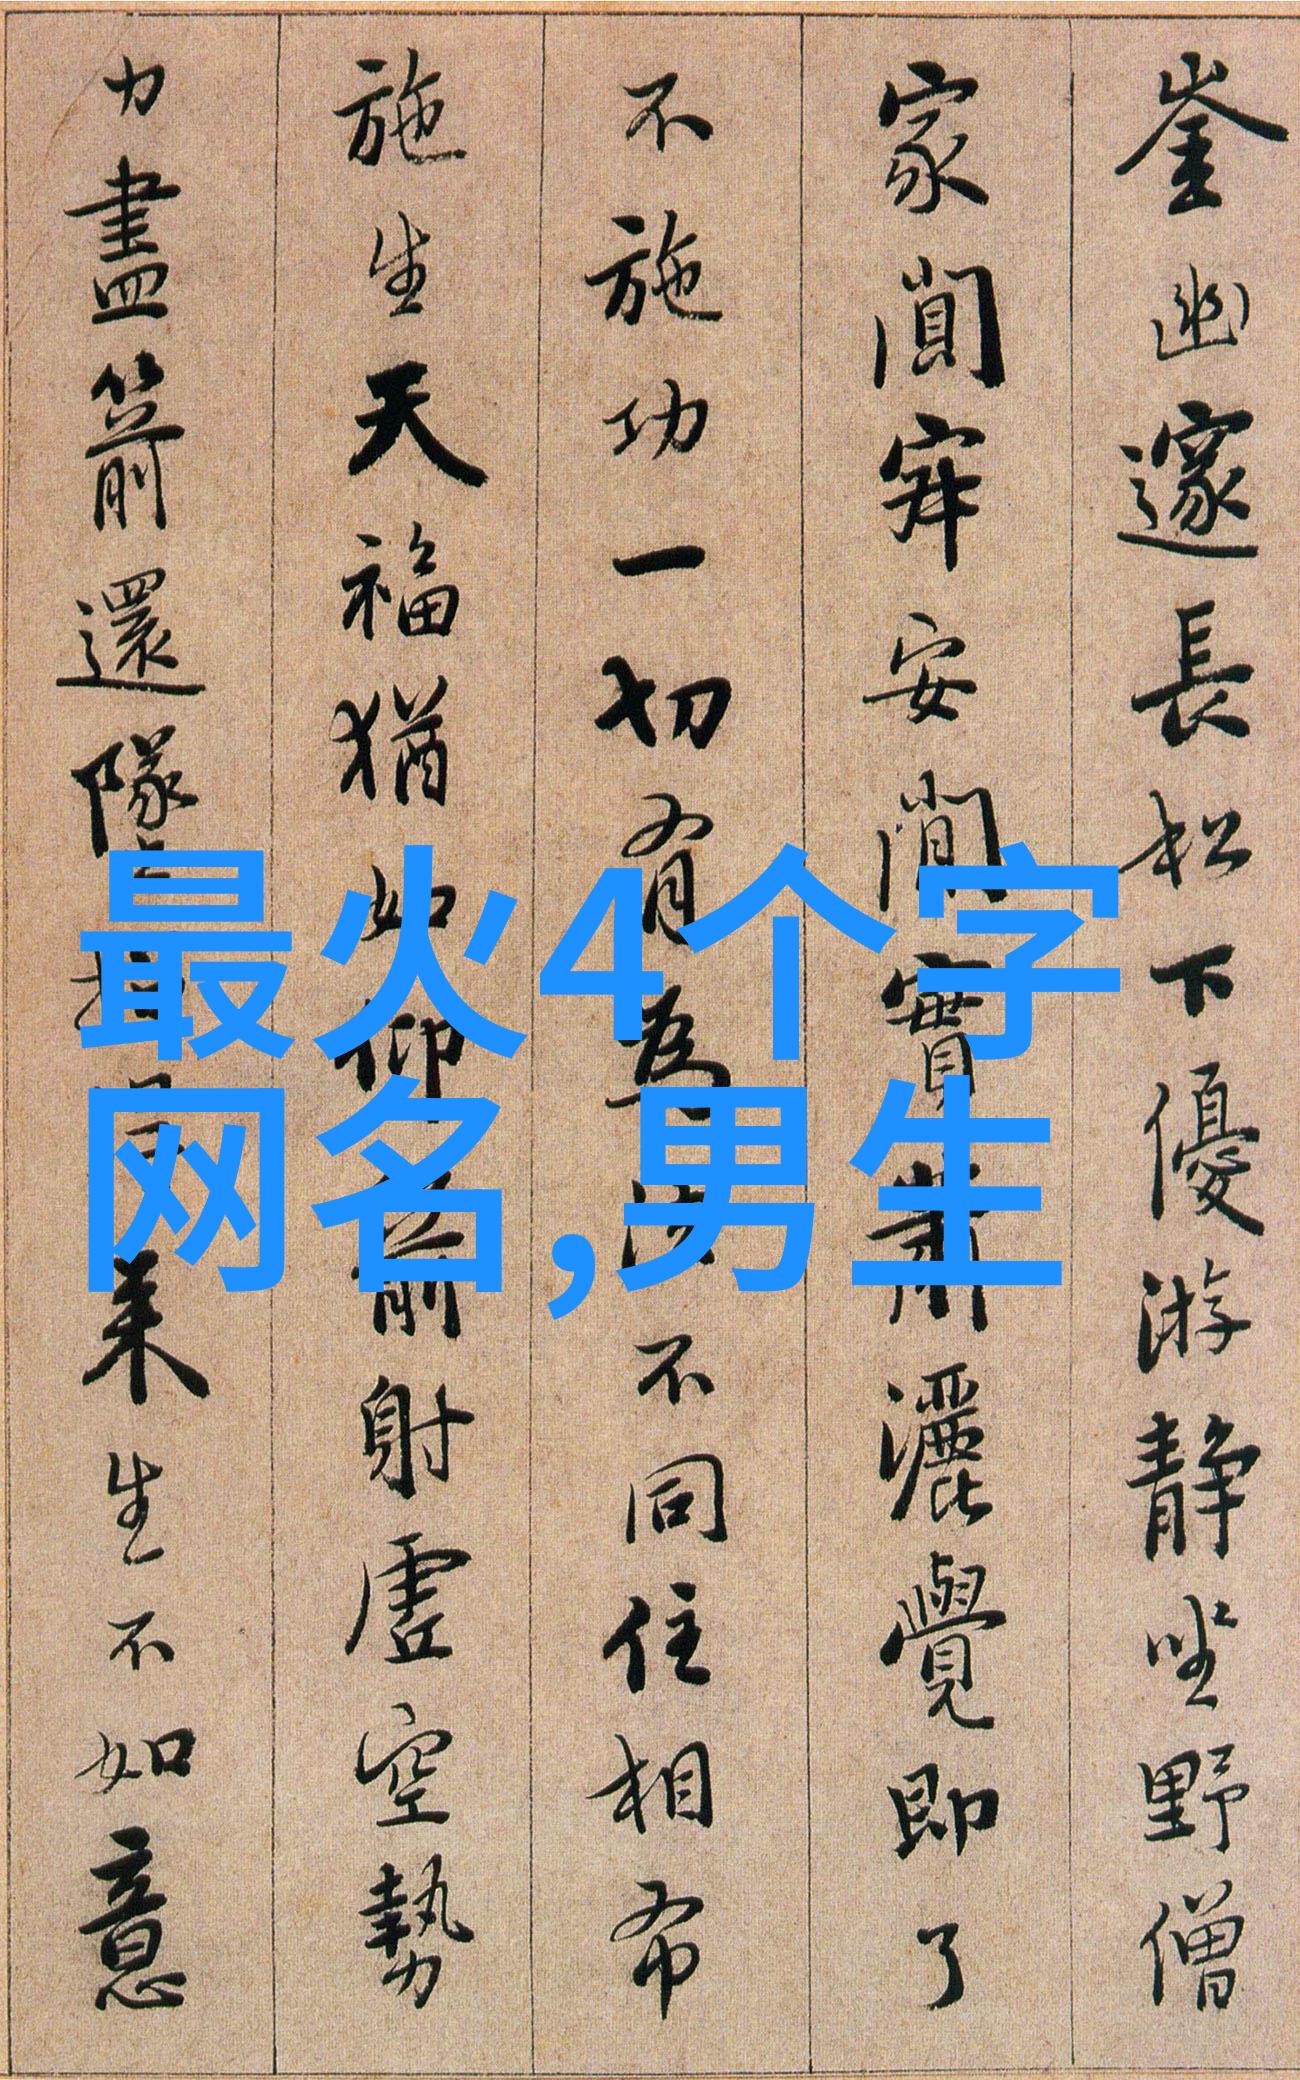 最火4个字
网名,男生
崟幽邃長松下優游静坐野僧
家闃寂安閒實蕭灑覺即了
不施功一切有為法不同住相布
施生天福猶如仰箭射虛空勢
力盡箭還墜來生不如意